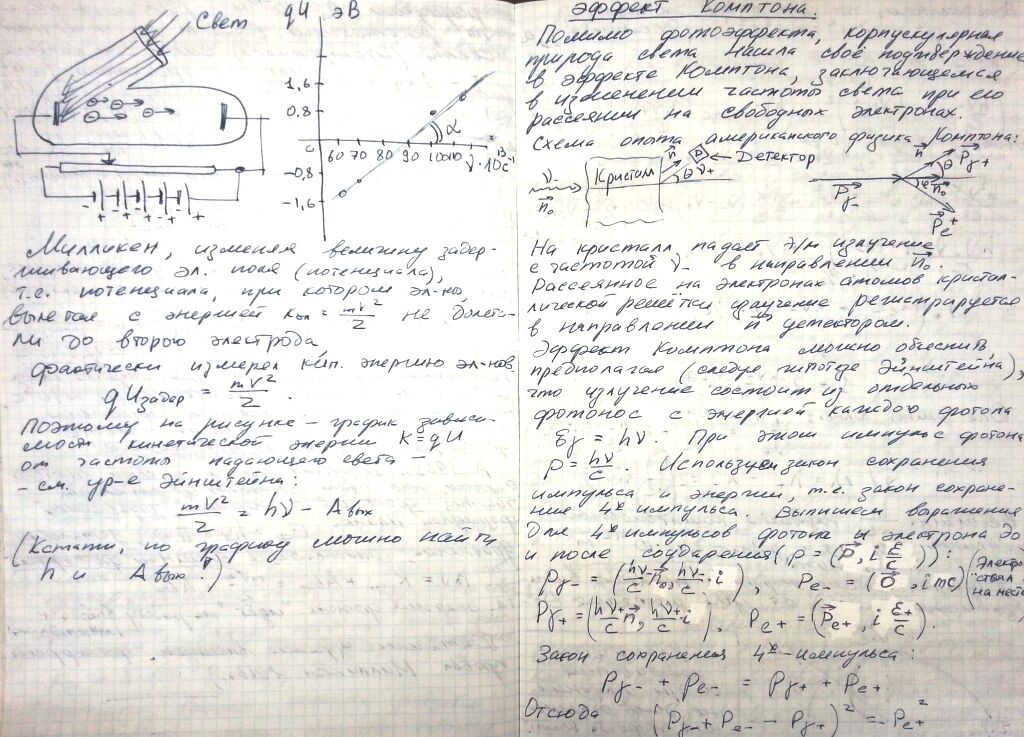 Свет
qU эВ
1,6
0,8
0
-0,8
-1,6
60 70 80 90 100
α
Милликен, изменяя величину задер-
живающего эл. поля (потенциала),
т.е. потенциала, при котором эл-ны,
вылетая с энергией = mv²/2 не долета-
ли до второго электрода
фактически измерял кин. энергию эл-нов.
qUзадер = mv²/2.
Поэтому на рисунке – график зависи-
мости кинетической энергии K=qU
от частоты падающего света –
- см. ур-е Эйнштейна:
mv²/2 = hν - Aвых
(Кстати, по графику можно найти
h и Aвых.)
Эффект Комптона.
Помимо фотоэффекта, корпускулярная
природа света нашла своё подтверждение
в эффекте Комптона, заключающемся
в изменении частоты света при его
рассеянии на свободных электронах.
Схема опыта американского физика Комптона:
ν- n⃗₀ Кристалл n⃗ D Детектор θ ν+
P⃗γ- P⃗γ+ θ n⃗₀ φ P⃗e+
На кристалл падает э/м излучение
с частотой ν- в направлении n⃗₀.
Рассеянное на электронах атомов кристал-
лической решётки излучение регистрируется
в направлении n⃗ детектором.
Эффект Комптона можно объяснить
предполагая (следуя гипотезе Эйнштейна),
что излучение состоит из отдельных
фотонов с энергией каждого фотона
Eγ = hν. При этом импульс фотона
p = hν/c. Используем закон сохранения
импульса и энергии, т.е. закон сохране-
ния 4х импульса. Выпишем выражения
для 4х импульсов фотона и электрона до
и после соударения (p = (p⃗, i ε/c)):
Pγ- = (hν-/c n⃗₀, hν-/c i), Pe- = (0⃗, imc) (Электрон стоял на месте)
Pγ+ = (hν+/c n⃗, hν+/c i), Pe+ = (P⃗e+, i ε+/c).
Закон сохранения 4х-импульса:
Pγ- + Pe- = Pγ+ + Pe+
Отсюда (Pγ- + Pe- - Pγ+)² = Pe+²